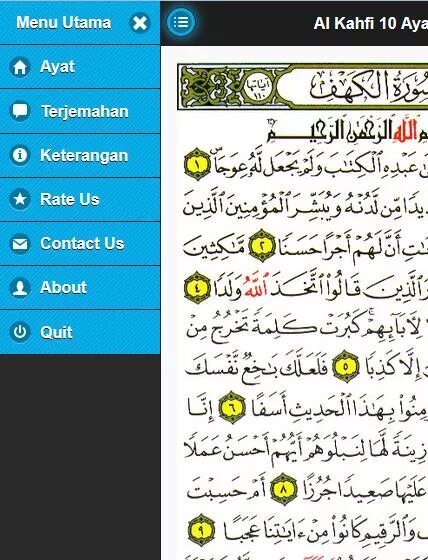 Menu Utama
Al Kahfi 10 Aya
Ayat
Terjemahan
Keterangan
Rate Us
Contact Us
About
Quit
آياتها ١١٠
سُورَةُ الكَهْف
اللَّهِ الرَّحْمَٰنِ الرَّحِيمِ
عَبْدِهِ الْكِتَابَ وَلَمْ يَجْعَل لَّهُ عِوَجًا ١
مِّن لَّدُنْهُ وَيُبَشِّرَ الْمُؤْمِنِينَ الَّذِينَ
أَنَّ لَهُمْ أَجْرًا حَسَنًا ٢ مَّاكِثِينَ
الَّذِينَ قَالُوا اتَّخَذَ اللَّهُ وَلَدًا ٤
لِآبَائِهِمْ كَبُرَتْ كَلِمَةً تَخْرُجُ مِنْ
إِلَّا كَذِبًا ٥ فَلَعَلَّكَ بَاخِعٌ نَّفْسَكَ
بِهَٰذَا الْحَدِيثِ أَسَفًا ٦ إِنَّا
زِينَةً لَّهَا لِنَبْلُوَهُمْ أَيُّهُمْ أَحْسَنُ عَمَلًا
عَلَيْهَا صَعِيدًا جُرُزًا ٨ أَمْ حَسِبْتَ
وَالرَّقِيمِ كَانُوا مِنْ ءَايَاتِنَا عَجَبًا ٩